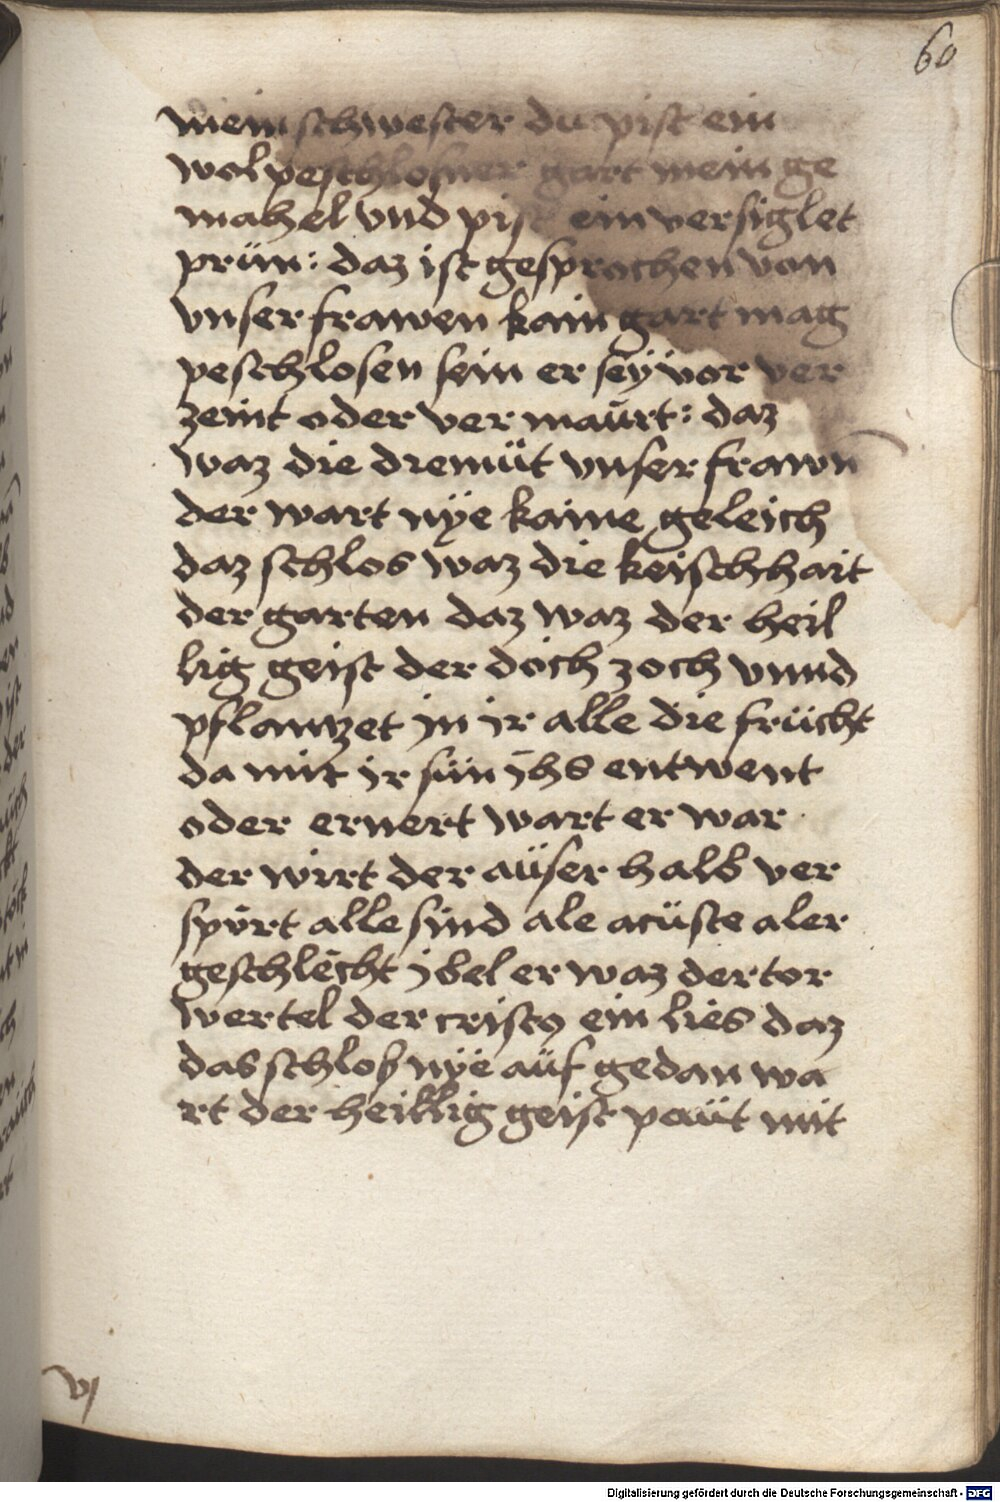 60
mein schwester du pist ein
wol peschlosner gart mein ge
mahel vnd pist ein versiglet
prün: daz ist gesprochen von
vnser frawen kain gart mag
peschlosen sein er seÿ vor ver
zeint oder ver maürt: daz
waz die diemüt vnser frawn
der wart nÿe kaine geleich
daz schlos waz die keischhait
der garten daz waz der heil
lig geist der doch zoch vnnd
pflantzet jn jr alle die frücht
da mit jr sün jhs entwent
oder ernert wart er war
der wirt der aüser halb ver
spürt alle sünd ale acüste aler
geschlecht jbel er waz der tor
wertel der cristꝯ ein lies daz
das schloß nÿe aüf gedan wa
rt der heillig geist paüt mit
vj
Digitalisierung gefördert durch die Deutsche Forschungsgemeinschaft - DFG